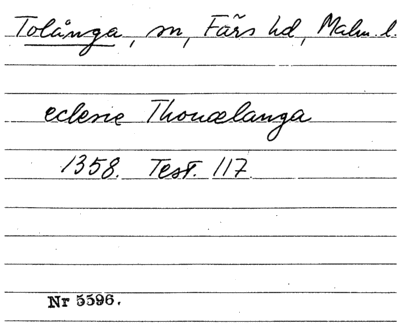 Tolånga, sn, Färs hd, Malm. l.
eclesie Thouælanga
1358. Test. 117
Nr 5596.